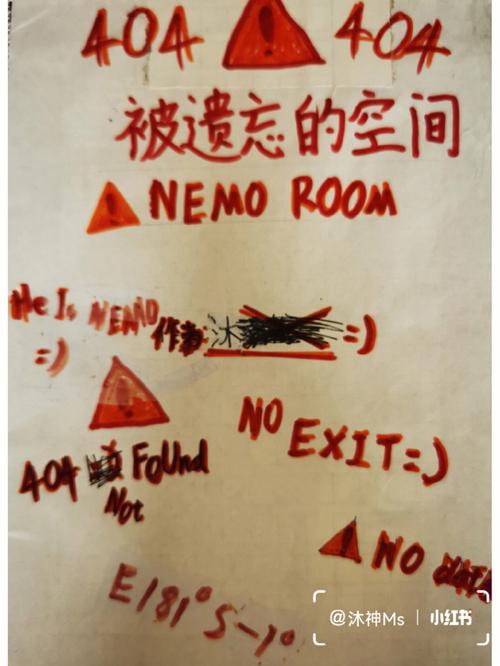 404 404
被遗忘的空间
NEMO ROOM
He Is NEMO
=)
作者:沐 =)
NO EXIT=)
404 Found
Not
NO
E181° S-1°
@沐神Ms | 小红书